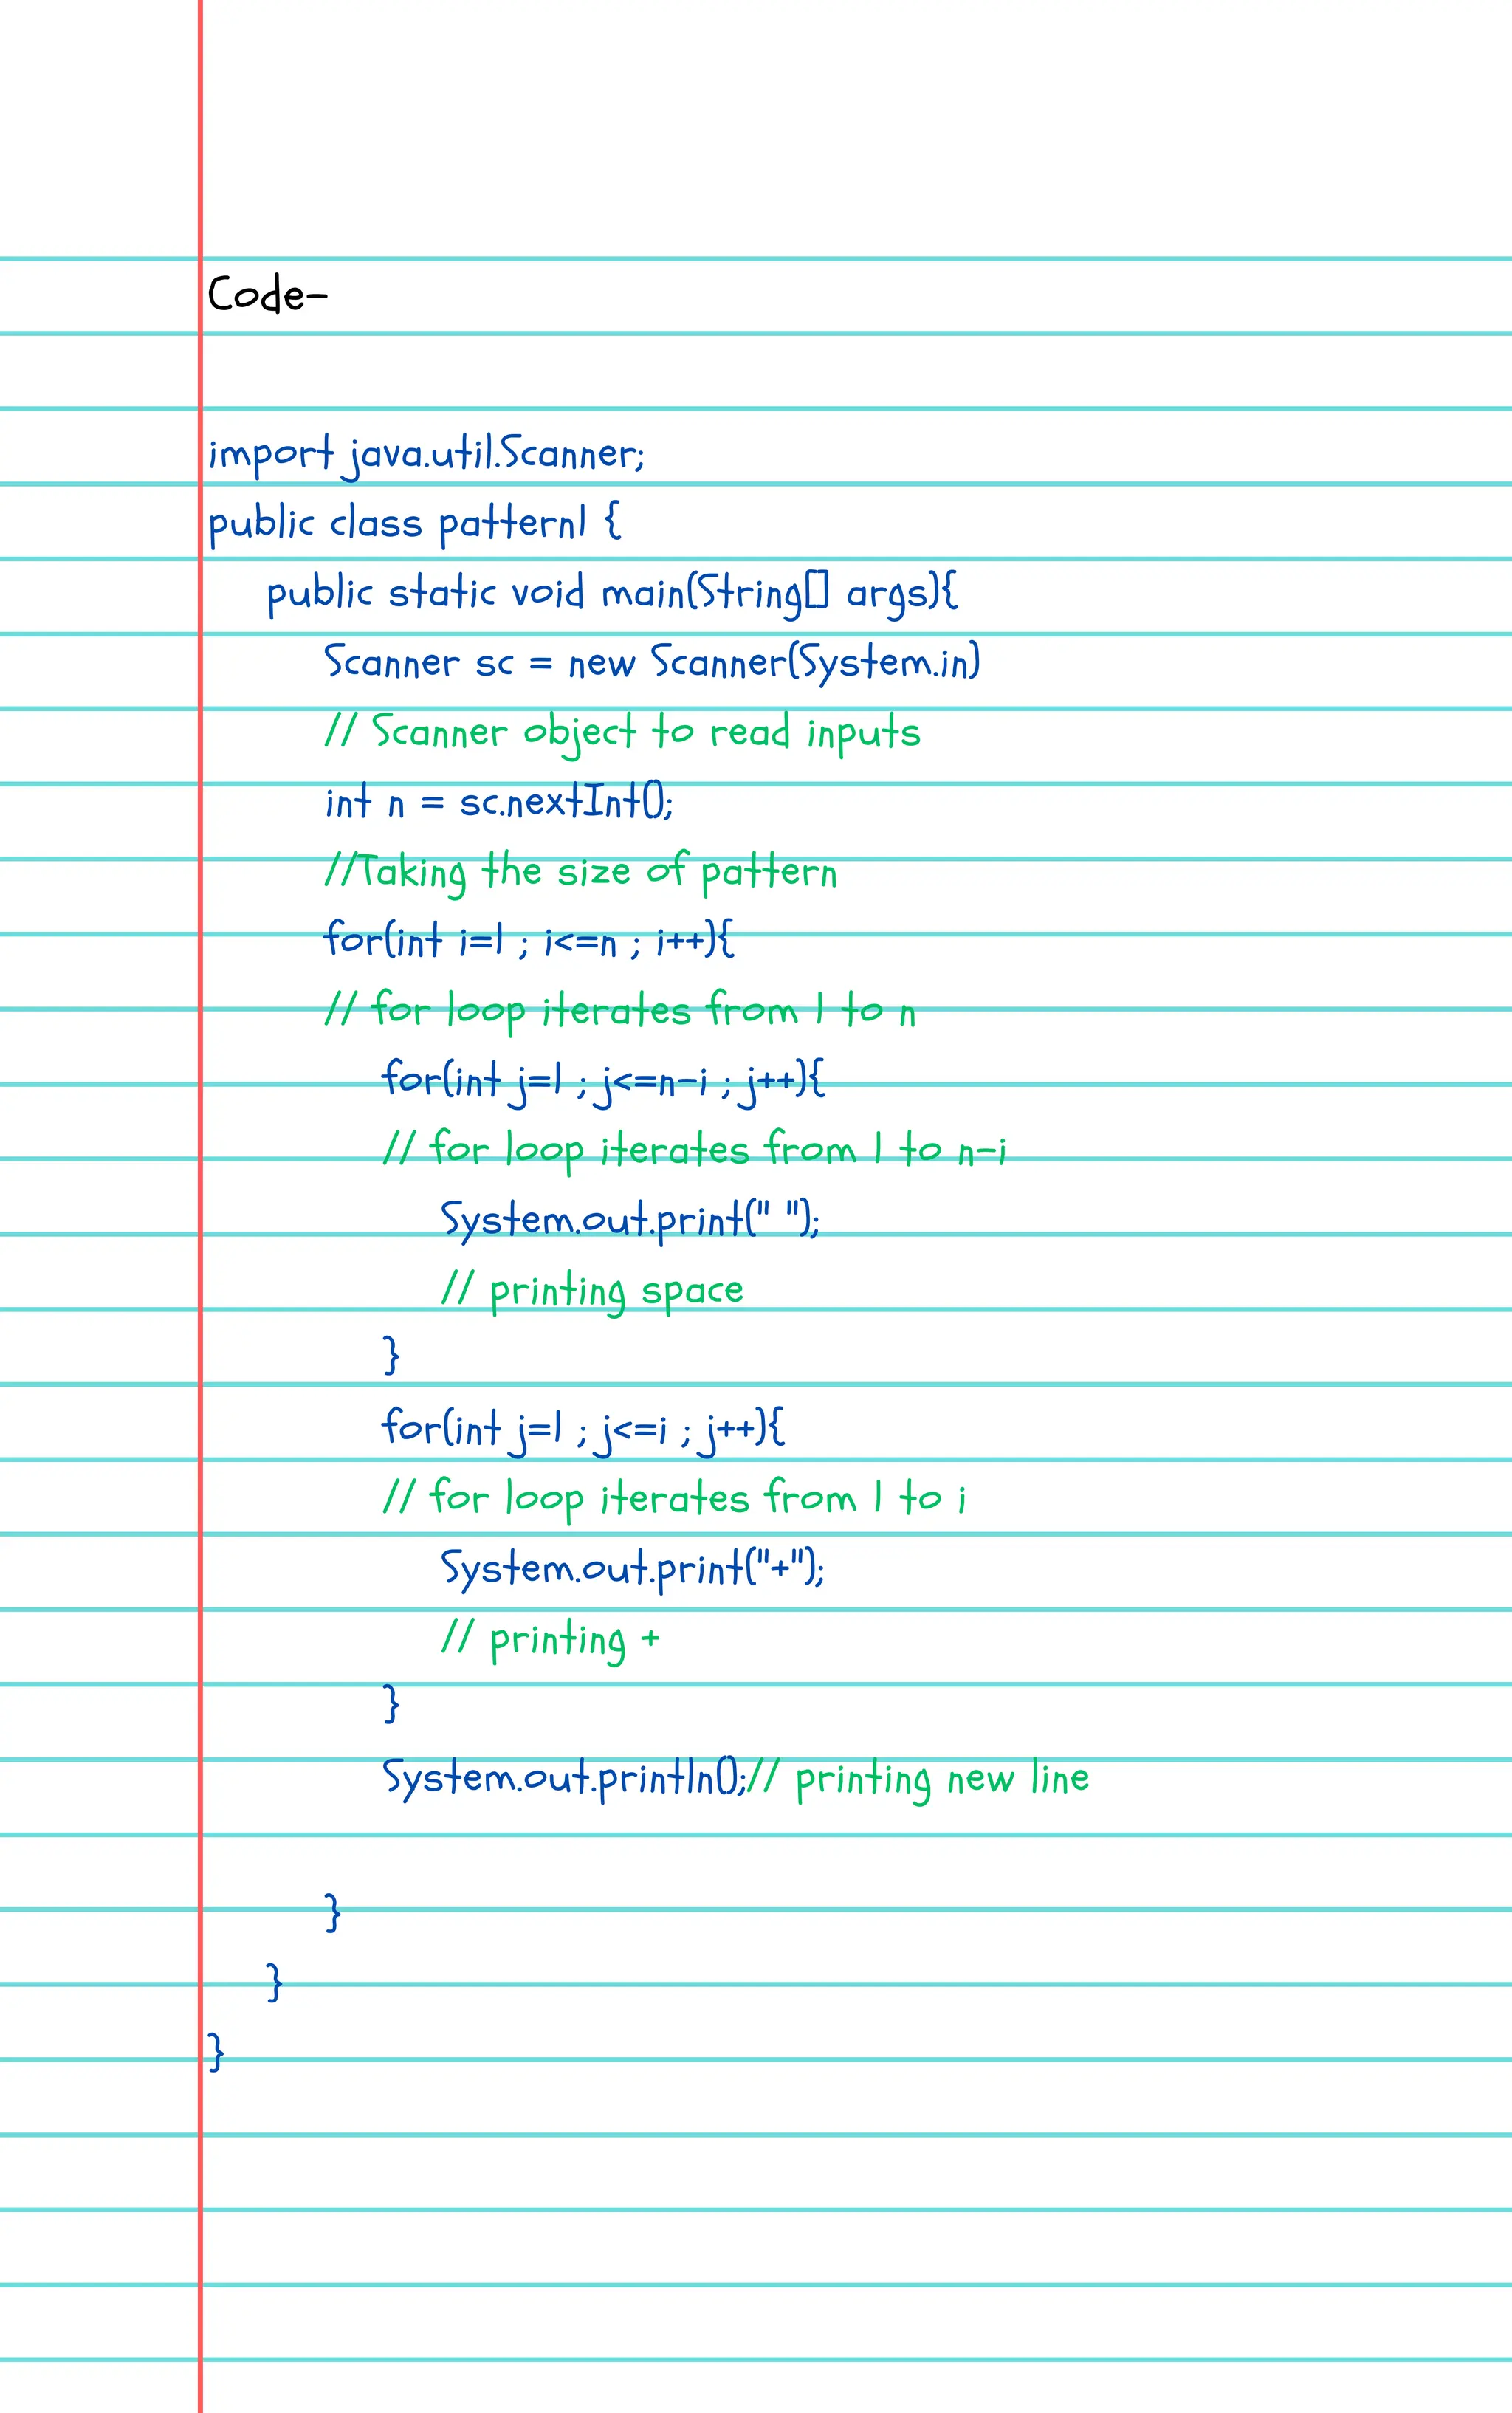 Code-
import java.util.Scanner;
public class pattern1 {
public static void main(String[] args){
Scanner sc = new Scanner(System.in)
// Scanner object to read inputs
int n = sc.nextInt();
//Taking the size of pattern
for(int i=1 ; i<=n ; i++){
// for loop iterates from 1 to n
for(int j=1 ; j<=n-i ; j++){
// for loop iterates from 1 to n-i
System.out.print(" ");
// printing space
}
for(int j=1 ; j<=i ; j++){
// for loop iterates from 1 to i
System.out.print("+");
// printing +
}
System.out.println();// printing new line
}
}
}